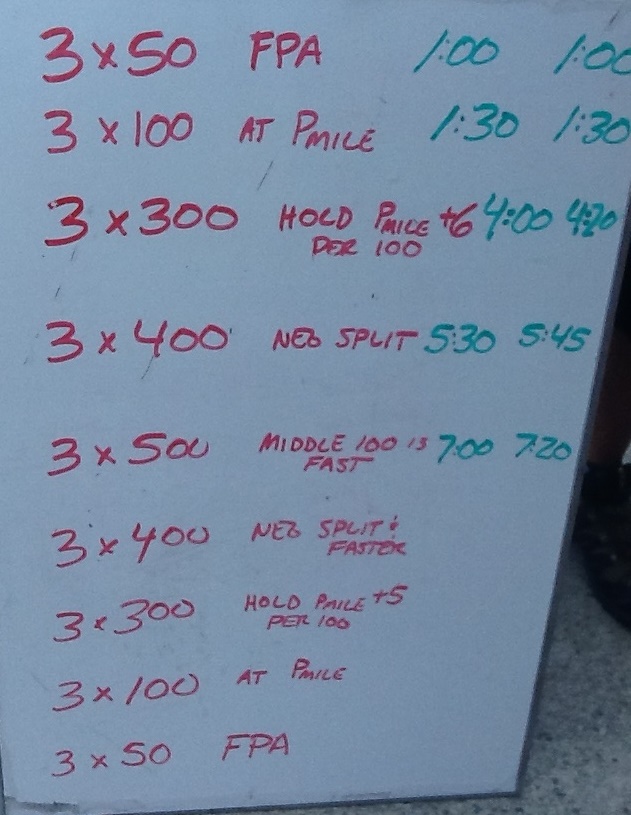 3 x 50 FPA 1:00 1:00
3 x 100 AT PMILE 1:30 1:30
3 x 300 HOLD PMILE +6 4:00 4:20
PER 100
3 x 400 NEG SPLIT 5:30 5:45
3 x 500 MIDDLE 100 IS 7:00 7:20
FAST
3 x 400 NEG SPLIT &
FASTER
3 x 300 HOLD PMILE +5
PER 100
3 x 100 AT PMILE
3 x 50 FPA